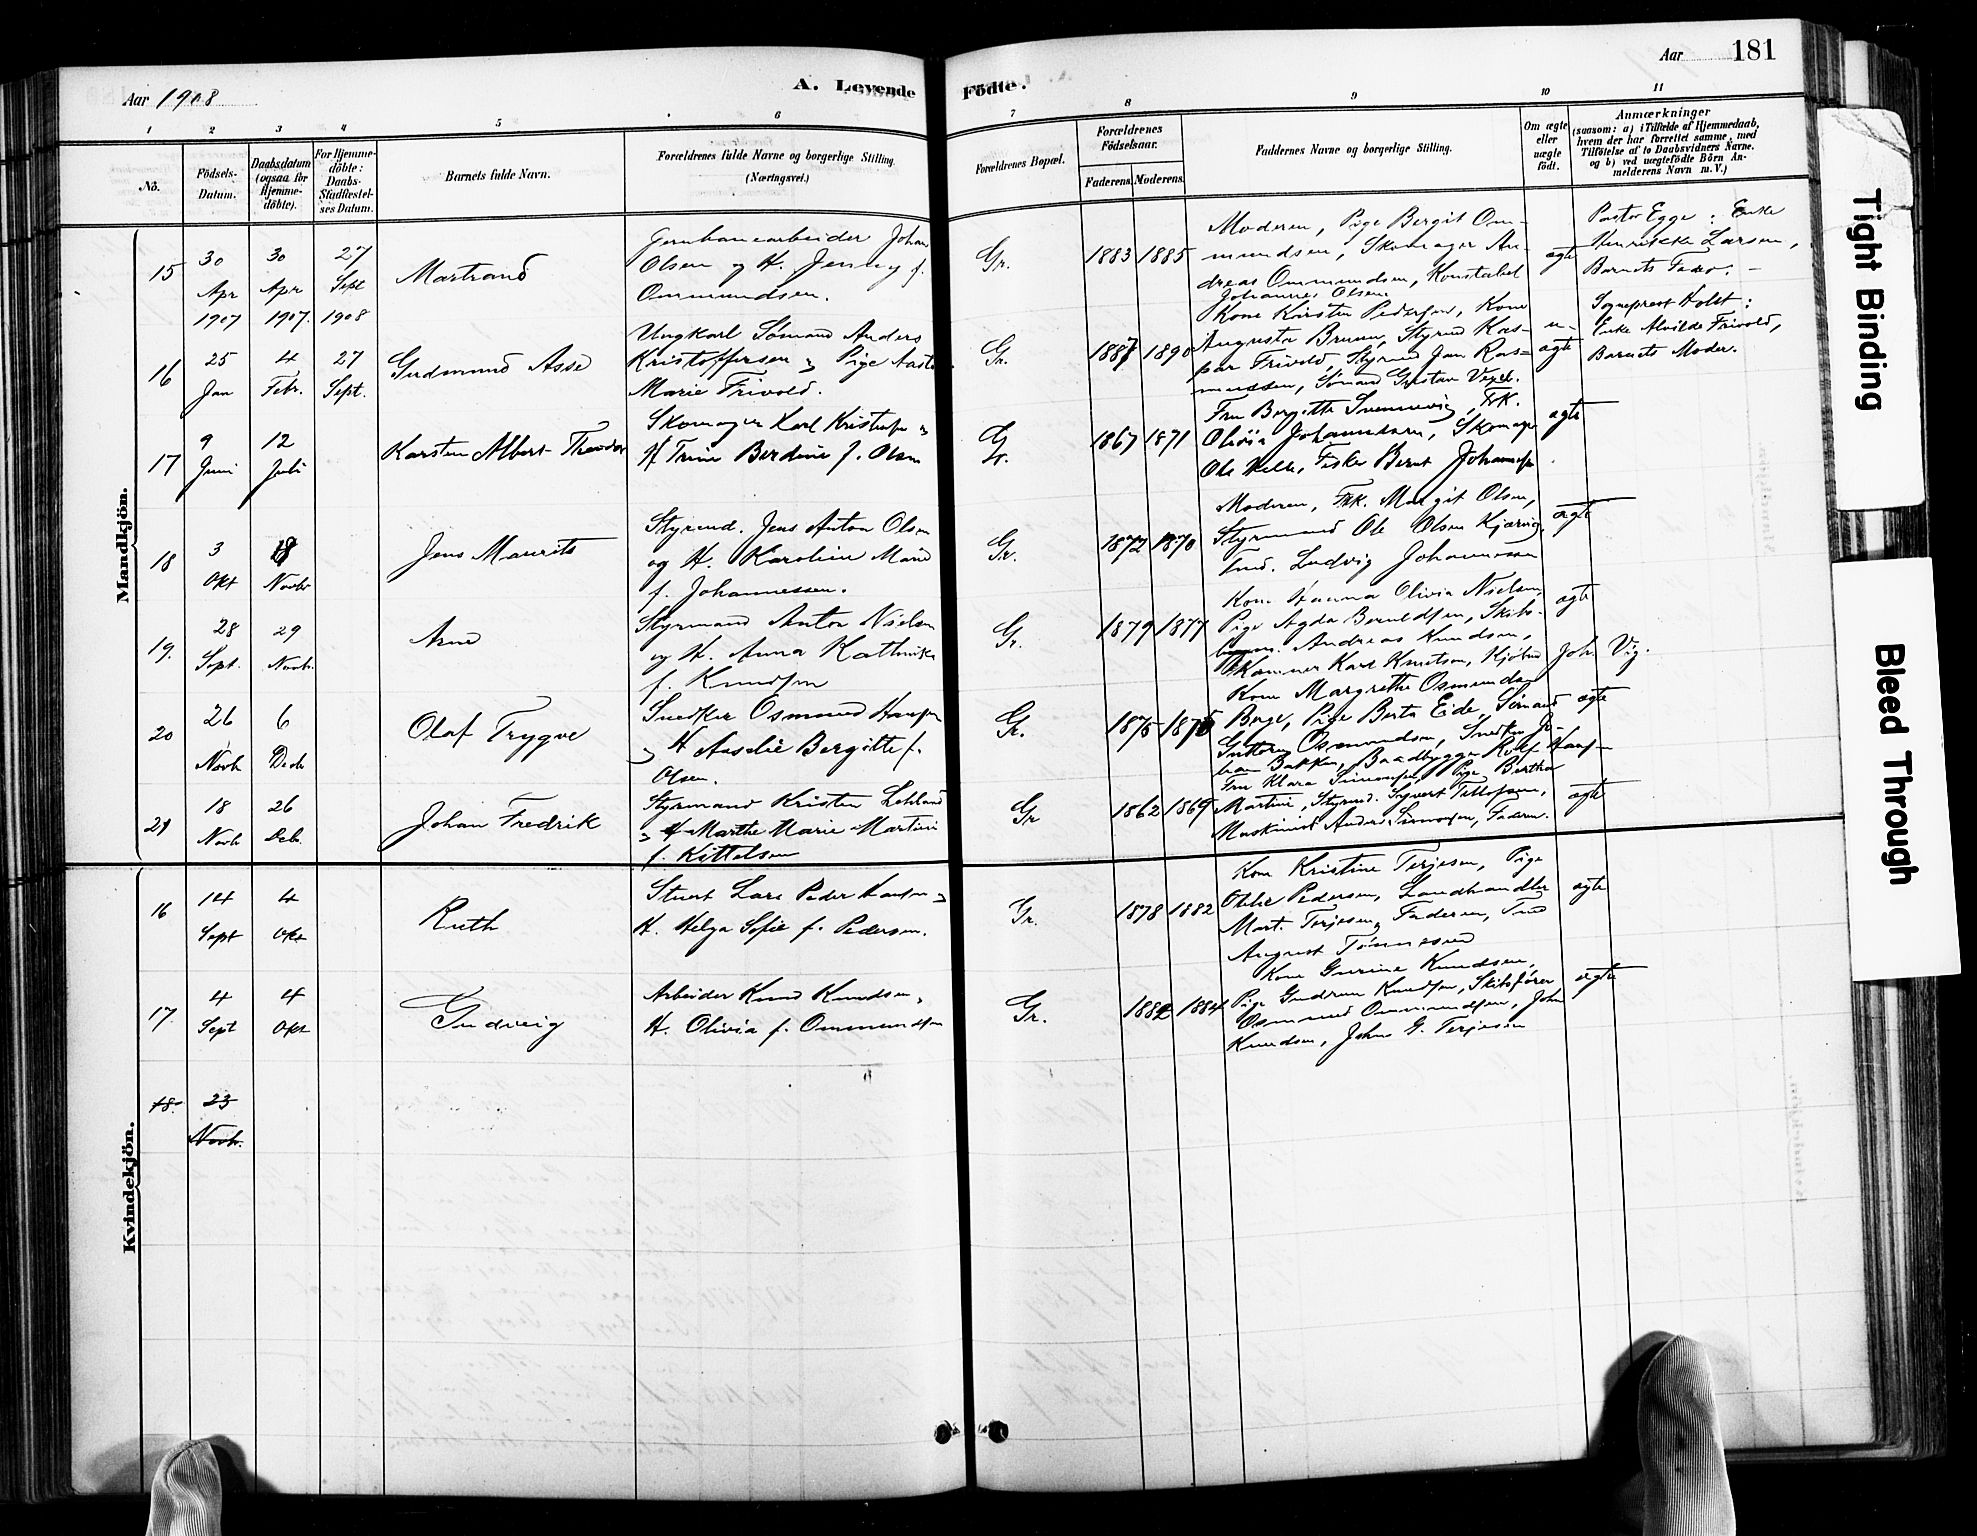 Aar 1908
A. Levende
Födte.
Aar
181
1 2 3 4 5 6 7 8 9 10 11
No.
Födsels-
Datum.
Daabsdatum
(ogsaa for
Hjemme-
döbte).
For Hjemme-
döbte:
Daabs-
Stadfæstel-
ses Datum.
Barnets fulde Navn.
Forældrenes fulde Navne og borgerlige Stilling.
(Næringsvei.)
Forældrenes Bopæl.
Forældrenes
Födselsaar.
Faderens. Moderens.
Faddernes Navne og borgerlige Stilling.
Om ægte
eller
uægte
födt.
Anmærkninger
(saasom: a) i Tilfælde af Hjemmedaab,
hvem der har forrettet samme, med
Tilföielse af to Daabsvidners Navne,
og b) ved uægtefödte Börn An-
melderens Navn m. V.)
Mandkjön.
15
30
Apr
1907
30
Apr
1907.
27
Sept
1908
Martrand
Jernbanearbeider Johan
Olsen og H. Jenny f.
Ommundsen.
Gr.
1883 1885
Moderen, Pige Bergit Om-
mundsen, Skomager An-
dreas Ommundsen, Konstabel
Johannes Olsen
ægte
Pastor Egge: Enke
Larsen,
Barnets Fader. -
16
25
Jan
4
Febr.
27
Sept.
Gudmund Asse
Ungkarl Sømand Anders
Kristoffersen og Pige Aasta
Marie Frivold.
Gr.
1887 1890
Kone Kirsten Pedersen, Kone
Augusta Bruun, Styrmd Kas-
par Frivold, Styrmd Jan Ras-
mussen, Sømand Gustav
u-
ægte
Sogneprest Holst:
Enke Alvilde Frivold,
Barnets Moder.
17
9
Juni
12
Juli
Karsten Albert Theodor
Skomager Karl Kristofs og
H Trine Berdine f. Olsen
Gr.
1867 1871
Fru Bergitte Svennevig, Frk.
Olivia Johannesen, Skomager
Ole Fisker Bernt Johannesen
ægte
18
3
Okt
8
Novbr
Jens Maurits
Styrmd. Jens Anton Olsen
og H. Karoline Marie
f. Johannessen.
Gr.
1872 1870
Moderen, Frk. Margit Olsen,
Styrmand Ole Olsen Kjærvig,
Tmd. Ludvig Johannessen
ægte
19.
28
Sept.
29
Novbr.
Arne
Styrmand Anton Nielsen
og H. Anna Kathinka
f. Knudsen
Gr.
1879 1877
Kone Hanna Olivia Nielsen,
Pige Agda Berntsen, Skibs-
Andreas Knudsen,
Karl Knutson, Kjøbmd Joh. Vig.
ægte
20
26
Novb
6
Decb
Olaf Trygve
Snedker Osmund Hansen
og H Aaselie Bergitte f.
Olsen.
Gr.
1875
Kone Margrethe Osmunds
Berge, Pige Berta Eide, Sømand
Guttorm Osmundsen, Snedker Jo-
han Bakken, Baadbygger Rolf Hans-
ægte
21
18
Novb
26
Decb.
Johan Fredrik
Styrmand Kristen
og H Marthe Marie Martine
f. Kittelsen
Gr
1862 1869
Fru Klara Simonsen, Pige Bertha
Martine, Styrmd. Syvert Tellefsen,
Maskinist Anders Simonsen, Faderen.
ægte
Kvindekjön.
16
14
Sept
4
Okt
Ruth
Stuert Lars Peder Hansen og
H. Helga Sofie f. Pedersen.
Gr.
1878 1882
Kone Kristine Terjesen, Pige
Pedersen, Landhandler
Mart. Terjesen, Faderen, Tmd
August Tønnesen
ægte
17
4
Sept
4
Okt
Gudveig
Arbeider Knud Knudsen,
H. Olivia f. Ommundsen
Gr.
1882 1884
Kone Gurine Knudsen,
Pige Gudrun Knudsen, Skibsfører
Osmund Ommundsen, John
Knudsen, John G. Terjesen
ægte
18.
23
Novbr.
Tight Binding
Bleed Through